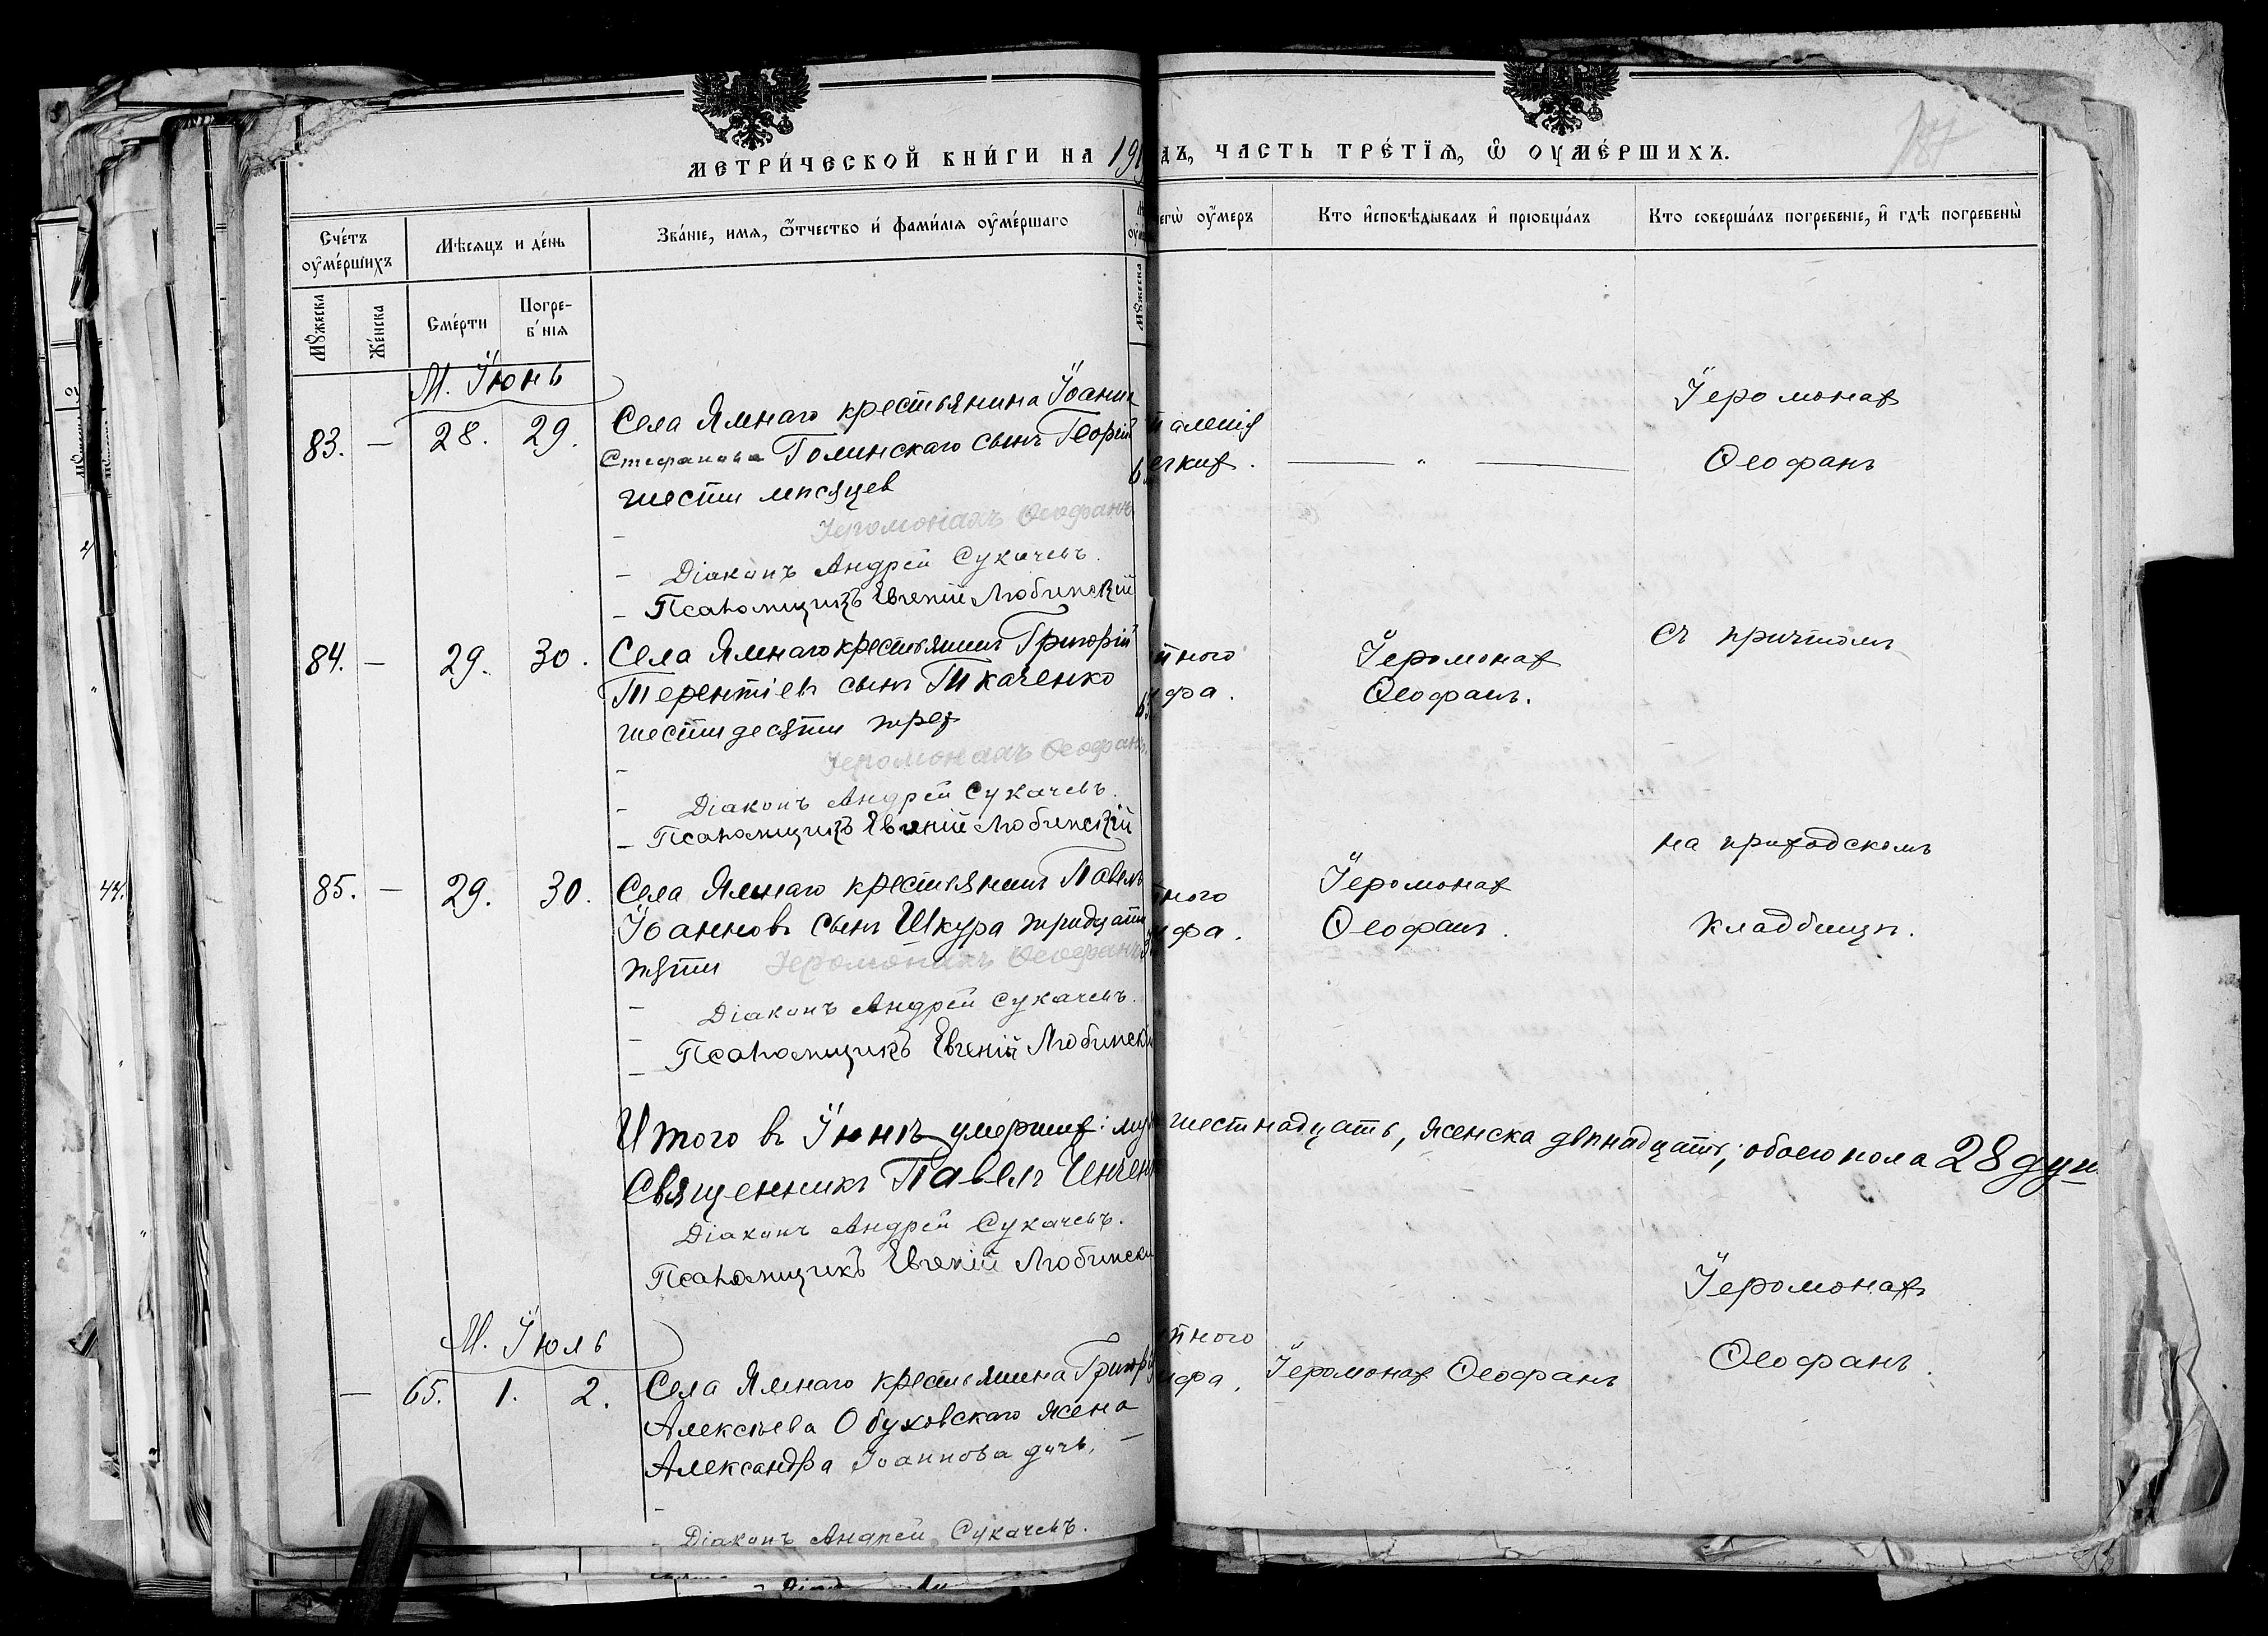 МЕТРИ́ЧЕСКОЙ КНИ́ГИ НА 191
ДЪ, ЧАСТЬ ТРЕ́ТІѦ, Ѡ҆ ОУМЕ́РШИХЪ.
187
Сче́тъ оу҆ме́ршихъ
Мѣсяцъ и де́нь
Зва́ніе, имя, ѻ҆́тчество и҆ фами́лія оу҆ме́ршаго
егѡ̀ оу҆́меръ
Кто и҆сповѣ́дывалъ и҆ пріобща́лъ
Кто соверша́лъ погребеніе, и҆ гдѣ̀ погребены̀
Мꙋ́жеска
Же́нска
Сме́рти
Погре-
б́нія
Мꙋ́жеска
М. Іюнь
83. — 28. 29.
Села Ямнаго крестьянина Іоанна
Стефанова Голинскаго сынъ Георгій
шести мѣсяцев
Іеромонахъ Ѳеофанъ
— Діаконъ Андрей Сукачевъ.
— Псаломщикъ Евгеній Любинскій
паленія
легких.
— " —
Іеромонах
Ѳеофанъ
84. — 29. 30.
Села Ямнаго крестьянинъ Григорій
Терентіевъ сынъ Ткаченко
шестидесяти трех
Іеромонахъ Ѳеофанъ.
— Діаконъ Андрей Сукачевъ.
— Псаломщикъ Евгеній Любинскій
пного
фа.
Іеромонах
Ѳеофанъ.
съ причтомъ
85. — 29. 30.
Села Ямнаго крестьянинъ Павелъ
Іоанновъ сынъ Шкура тридцати
пяти Іеромонахъ Ѳеофанъ
— Діаконъ Андрей Сукачевъ.
— Псаломщикъ Евгеній Любинскій
ного
фа.
Іеромонах
Ѳеофанъ.
на приходскомъ
кладбищѣ.
Итого въ Іюнѣ умерших: муж шестнадцать, женска двѣнадцать; обоего пола 28 душ
Священникъ Павелъ
Діаконъ Андрей Сукачевъ.
Псаломщикъ Евгеній Любински
М. Іюль
— 65. 1. 2.
Села Ямнаго крестьянина Григорі
Алексѣева Обуховскаго жена
Александра Іоаннова дочь. —
— Діаконъ Андрей Сукачевъ.
пного
ифа.
Іеромонах Ѳеофанъ
Іеромонах
Ѳеофанъ.
44.